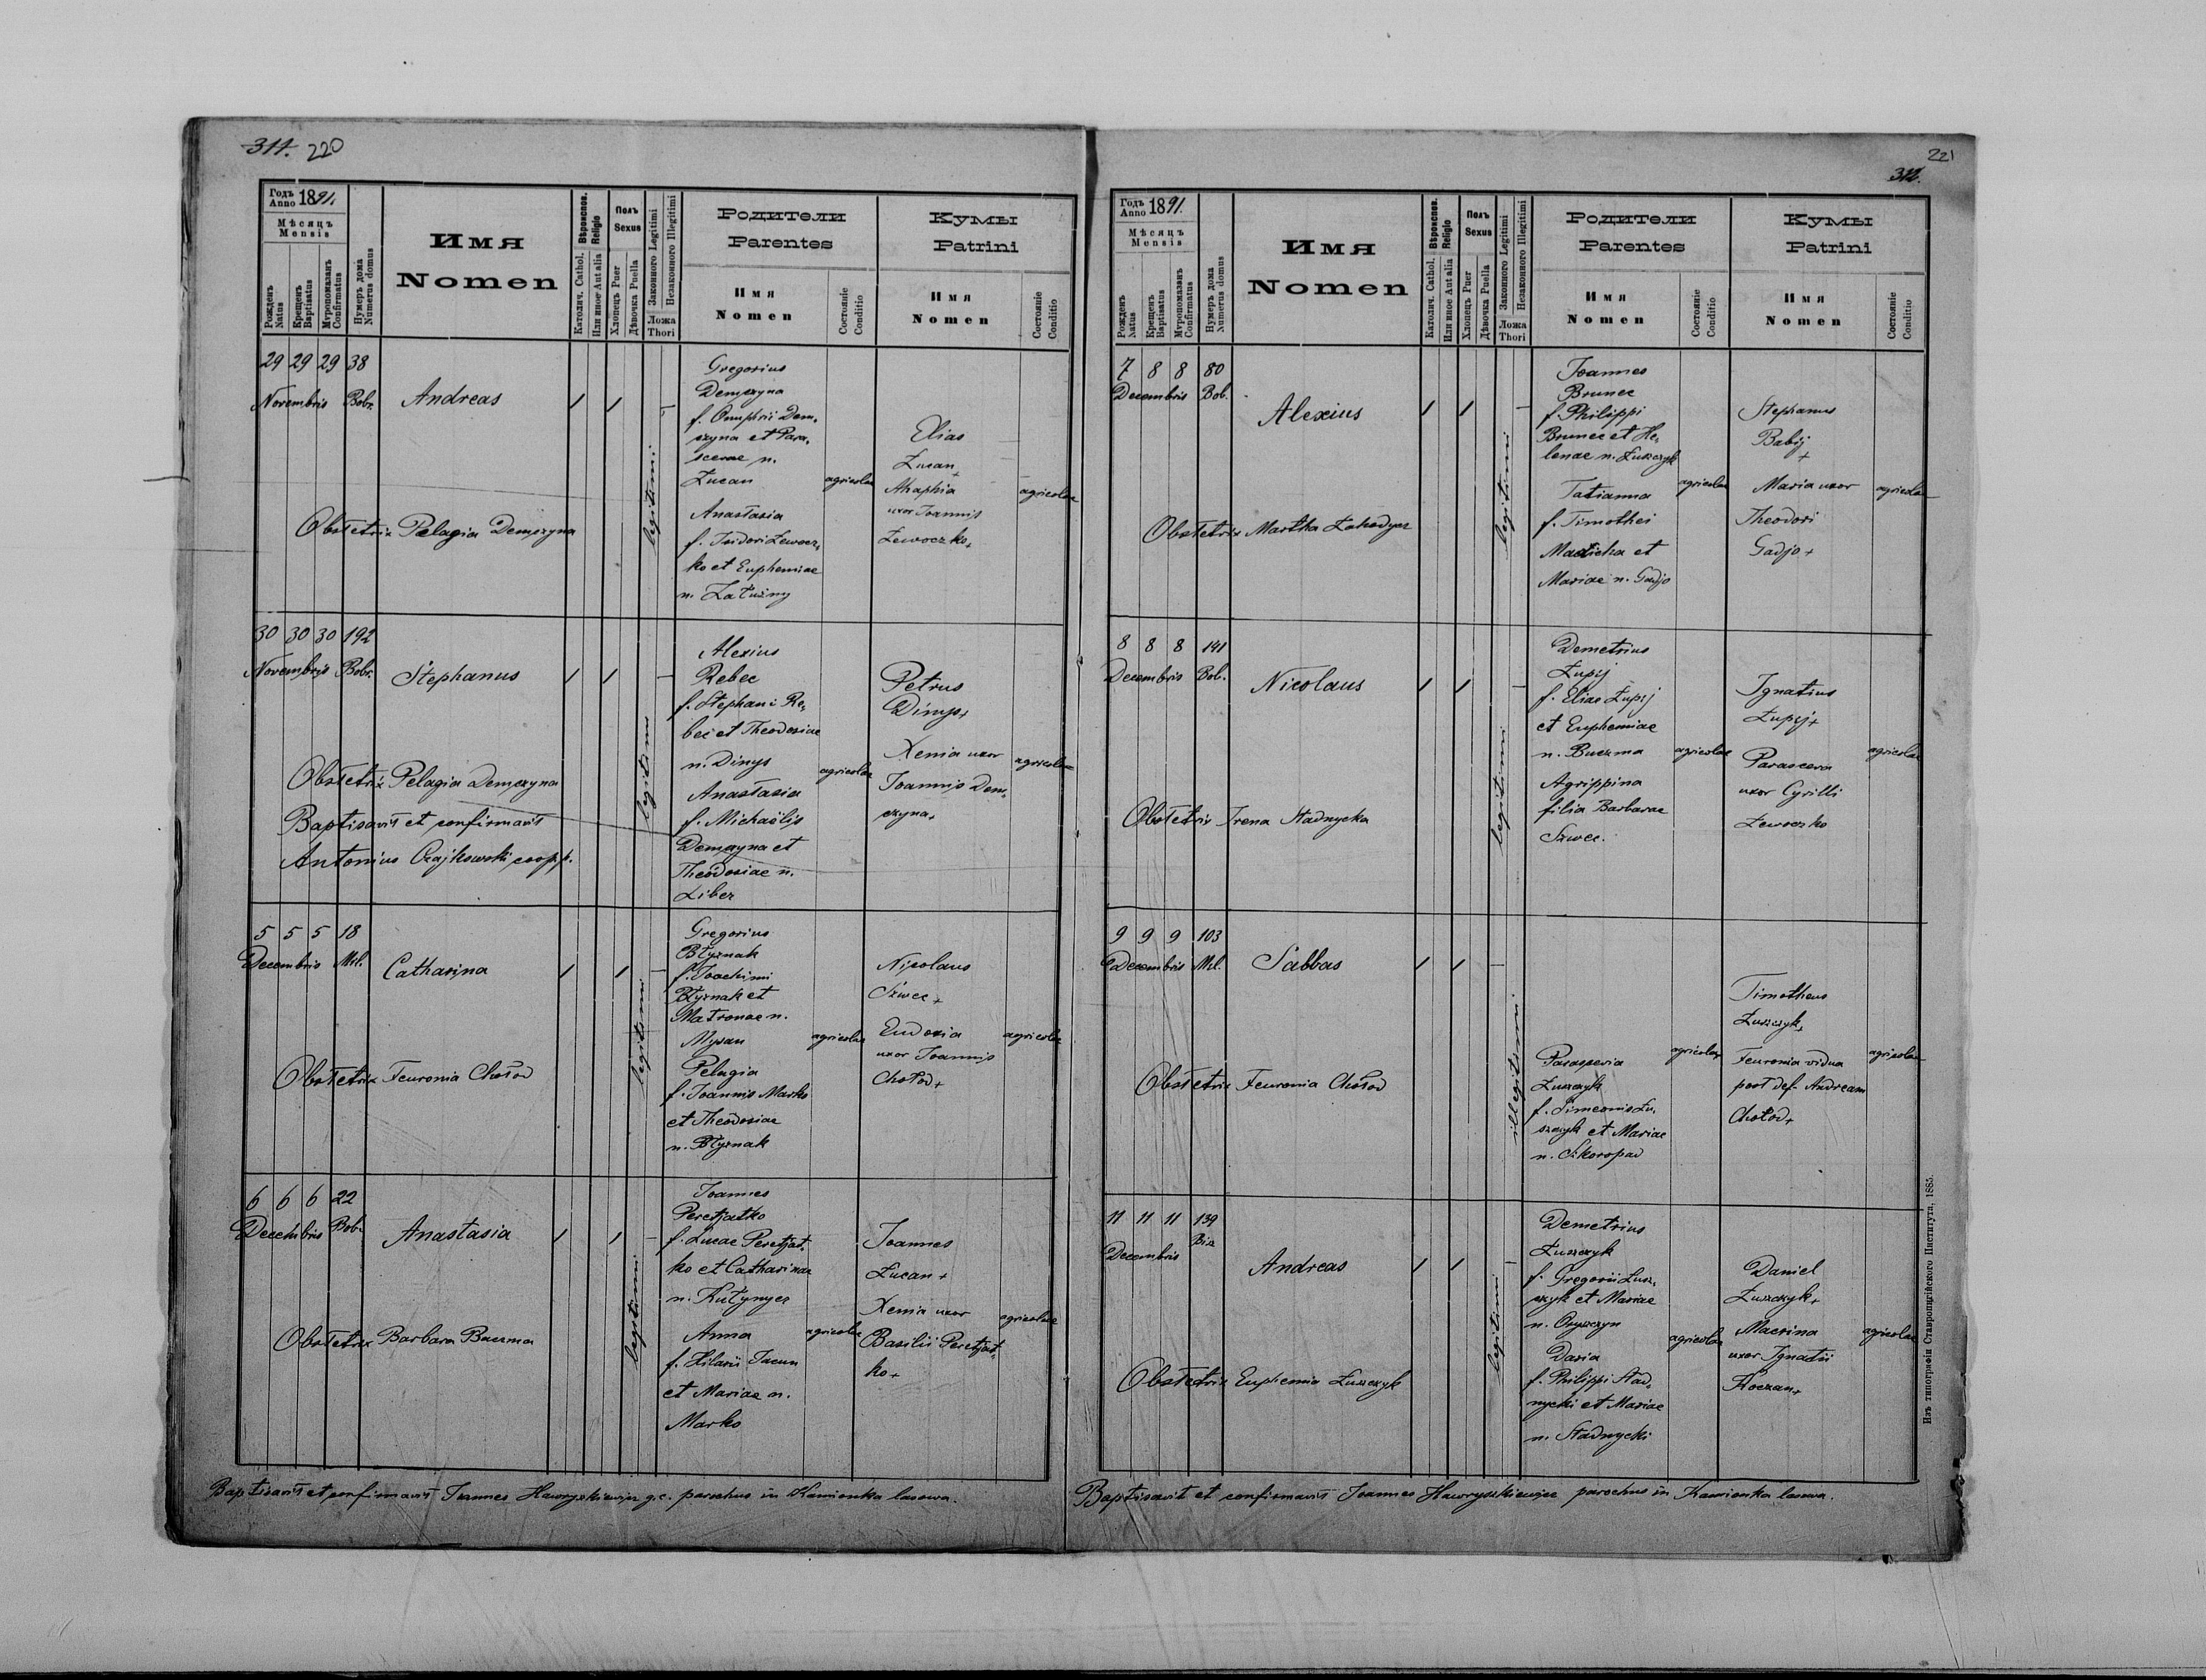 311. 220
Годъ Anno 1891.
Мѣсяцъ Mensis
Рожденъ Natus
Крещенъ Baptisatus
Мѵропомазанъ Confirmatus
Нумеръ дома Numerus domus
Имя Nomen
Вѣроиспов. Religio
Католич. Cathol.
Или иное Aut alia
Полъ Sexus
Хлопецъ Puer
Дѣвочка Puella
Законного Legitimi
Незаконного Illegitimi
Ложа Thori
Родители Parentes
Имя Nomen
Состояніе Conditio
Кумы Patrini
Имя Nomen
Состояніе Conditio
29 29 29 38
Novembris Bobr.
Andreas
legitimi
Gregorius
Demczyna
f. Onuphrii Dem-
czyna et Para-
scevae n.
Łucan
Anastasia
f. Isidori Lewocz-
ko et Euphemiae
n. Załużny
agricolae
Elias
Łucan +
Ahaphia
uxor Joannis
Lewoczko +
agricolae
Obstetrix Pelagia Demczyna
30 30 30 192
Novembris Bobr.
Stephanus
legitimi
Alexius
Rebec
f. Stephani Re-
bec et Theodosiae
n. Dinys
Anastasia
f. Michaëlis
Demczyna et
Theodosiae n.
Liber
agricolae
Petrus
Dinys +
Xenia uxor
Joannis Dem-
czyna +
agricolae
Obstetrix Pelagia Demczyna
Baptisavit et confirmavit
Antonius Czajkowski coop.
5 5 5 18
Decembris Mil.
Catharina
legitimi
Gregorius
Błyznak
f. Joachimi
Błyznak et
Matronae n.
Mysan
Pelagia
f. Joannis Marko
et Theodosiae
n. Błyznak
agricolae
Nicolaus
Szwec +
Eudoxia
uxor Joannis
Chołod +
agricolae
Obstetrix Feuronia Chołod
6 6 6 22
Decembris Bob.
Anastasia
legitimi
Joannes
Peretjatko
f. Lucae Peretjat-
ko et Catharinae
n. Kutynyec
Anna
f. Hilarii Jacun
et Mariae n.
Marko
agricolae
Joannes
Łucan +
Xenia uxor
Basilii Peretjat-
ko +
agricolae
Obstetrix Barbara Buczma
Baptisavit et confirmavit Joannes Hawryszkiewicz g.c. parochus in Kamionka lasowa.
221
312.
Годъ Anno 1891.
Мѣсяцъ Mensis
Рожденъ Natus
Крещенъ Baptisatus
Мѵропомазанъ Confirmatus
Нумеръ дома Numerus domus
Имя Nomen
Вѣроиспов. Religio
Католич. Cathol.
Или иное Aut alia
Полъ Sexus
Хлопецъ Puer
Дѣвочка Puella
Законного Legitimi
Незаконного Illegitimi
Ложа Thori
Родители Parentes
Имя Nomen
Состояніе Conditio
Кумы Patrini
Имя Nomen
Состояніе Conditio
7 8 8 80
Decembris Bob.
Alexius
legitimi
Joannes
Brunec
f. Philippi
Brunec et He-
lenae n. Łuszczyk
Tatianna
f. Timothei
et
Mariae n. Gadjo
agricolae
Stephanus
Babij
+
Maria uxor
Theodori
Gadjo +
agricolae
Obstetrix Martha Łahodycz
8 8 8 141
Decembris Bob.
Nicolaus
legitimi
Demetrius
Łupij
f. Eliae Łupij
et Euphemiae
n. Buczma
Agrippina
filia Barbarae
Szwec.
agricolae
Ignatius
Łupij +
Parasceva
uxor Cyrilli
Lewoczko
agricolae
Obstetrix Irena Stadnycka
9 9 9 103
Decembris Mil.
Sabbas
illegitimi
Parascevia
Łuszczyk
f. Simeonis Łu-
szczyk et Mariae
n. Szkoropad
agricolae
Timotheus
Łuszczyk +
Feuronia vidua
post def. Andream
Chołod +
agricolae
Obstetrix Feuronia Chołod
11 11 11 139
Decembris Bia
Andreas
legitimi
Demetrius
Łuszczyk
f. Gregorii Łusz-
czyk et Mariae
n. Onyszczyn
Daria
f. Philippi Stad-
nycki et Mariae
n. Stadnycki
agricolae
Daniel
Łuszczyk +
Macrina
uxor Ignatii
Koczan +
agricolae
Obstetrix Euphemia Łuszczyk
Baptisavit et confirmavit Joannes Hawryszkiewicz parochus in Kamionka lasowa.
Изъ типографіи Ставропигійского Института, 1885.